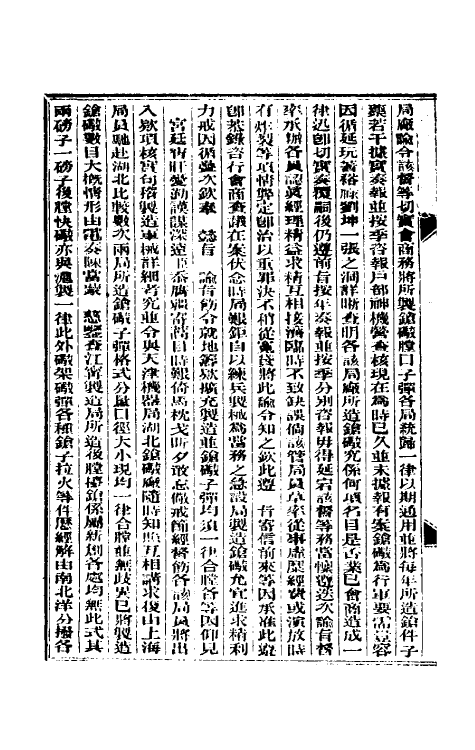 局廠諭令該督等切實會商務將所製鎗膛口子彈各局統歸一律以期通用並將每年所造鎗件子
藥若干據實奏報並按季咨報戶部神機營查核現在為時已久並未據報有案鎗礮為行軍要需豈容
因循延玩著裕祿劉坤一張之洞詳晰查明各該局廠所造鎗礮究係何項名目是否業已會商造成一
律迅卽切實奏覆嗣後仍遵前旨按年奏報並按季分別咨報毋得延宕該督等務當懍遵迭次諭旨督
率承辦各員認眞經理精益求精互相接濟臨時不致缺誤倘該管局員草率從事虛糜經費或演放時
有炸裂等項情弊定卽治以重罪決不稍從寬貸將此諭令知之欽此遵　旨寄信前來等因承准此遵
卽恭錄咨行會商査議在案伏念時局艱鉅自以練兵製械為當務之急設局製造鎗礮允宜進求精利
力戒因循疊次欽奉　懿旨　諭旨飭令就地籌欵擴充製造並鎗礮子彈均須一律合膛各等因仰見
宮廷宵旰憂勤謨謀深遠下忝膺疆寄蒿目時艱倚馬枕戈昕夕敢忘儆戒簡經督飭各該局員將出
入欵項核實句稽製造軍械詳細考究並令與天津機器局湖北鎗礮廠隨時知照互相講求復由上海
局員馳赴湖北比較數次兩局所造鎗礮子彈格式分量口徑大小現均一律合膛並無歧異已將製造
鎗礮數目大概情形由電奏陳當蒙　慈鑒查江甯製造局所造後膛擡鎗係屬新創各處均無此式其
兩磅子一磅子後膛快礮亦與滬製一律此外礮架礮彈各種鎗子拉火等件歷經解由南北洋分撥各